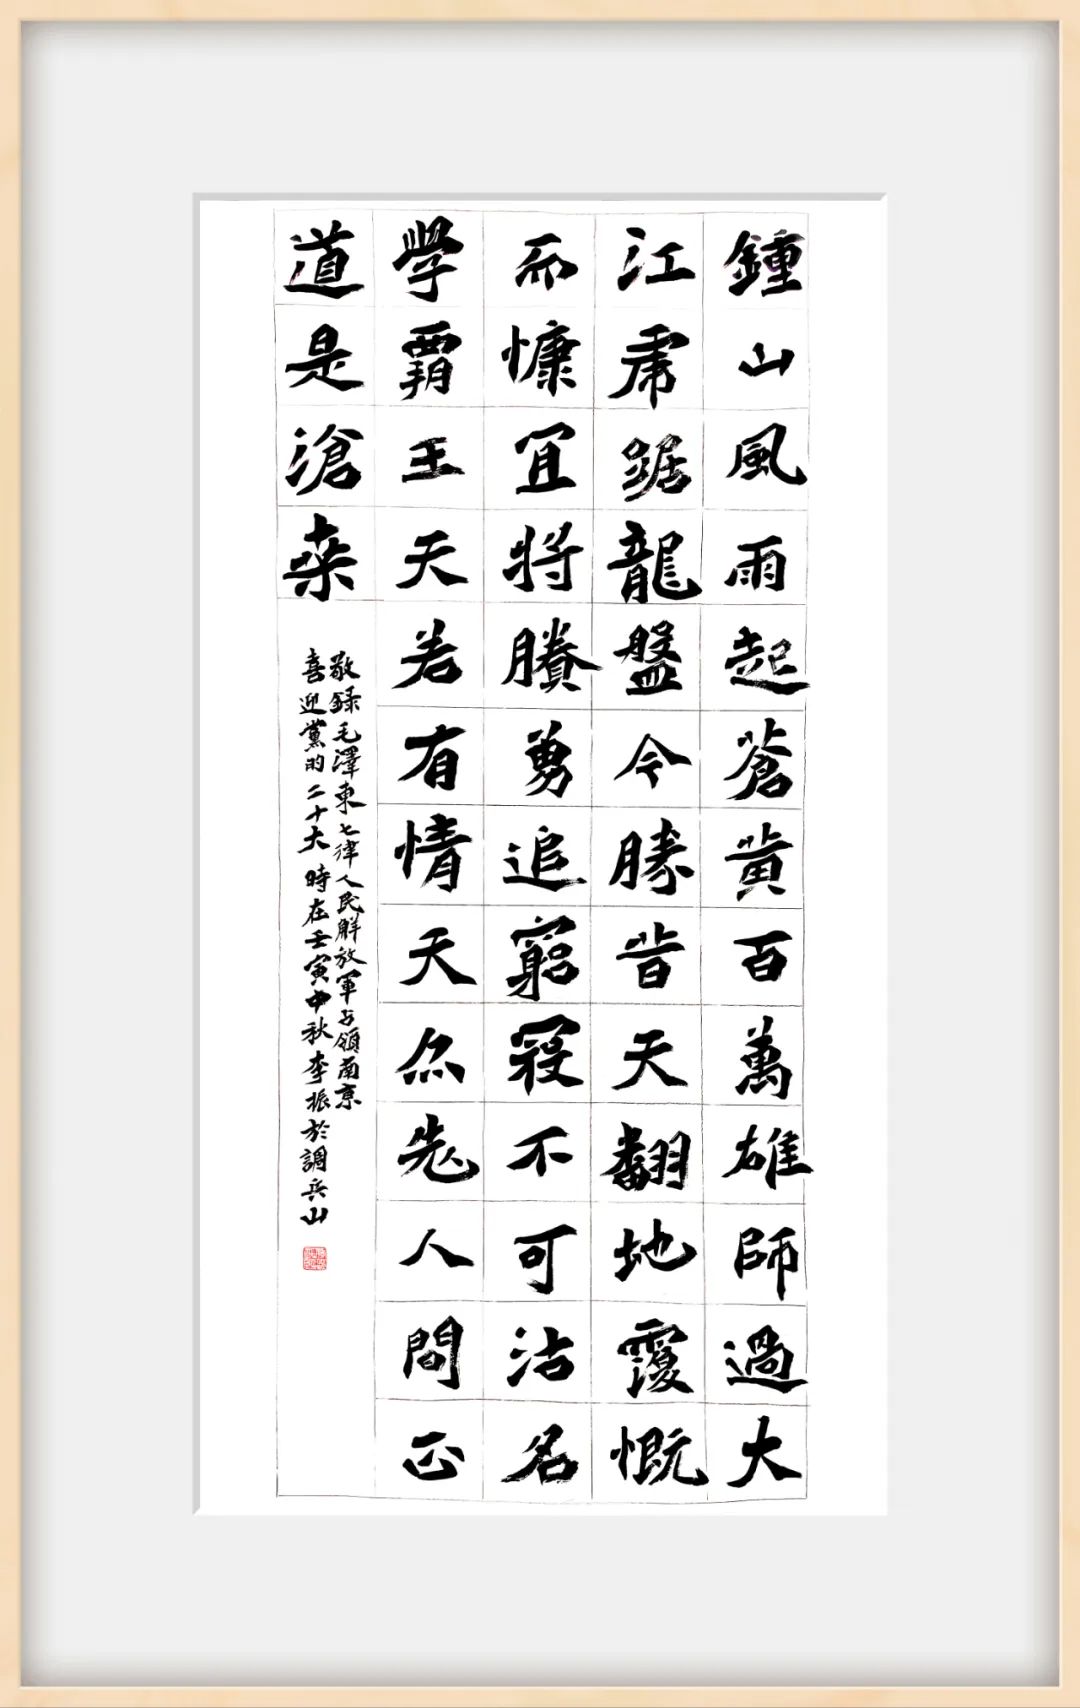 鍾山風雨起蒼黃百萬雄師過大
江虎踞龍盤今勝昔天翻地覆慨
而慷宜將賸勇追窮寇不可沽名
學霸王天若有情天亦老人間正
道是滄桒
敬録毛澤東七律人民解放軍占領南京
喜迎黨的二十大 時在壬寅中秋李振於調兵山